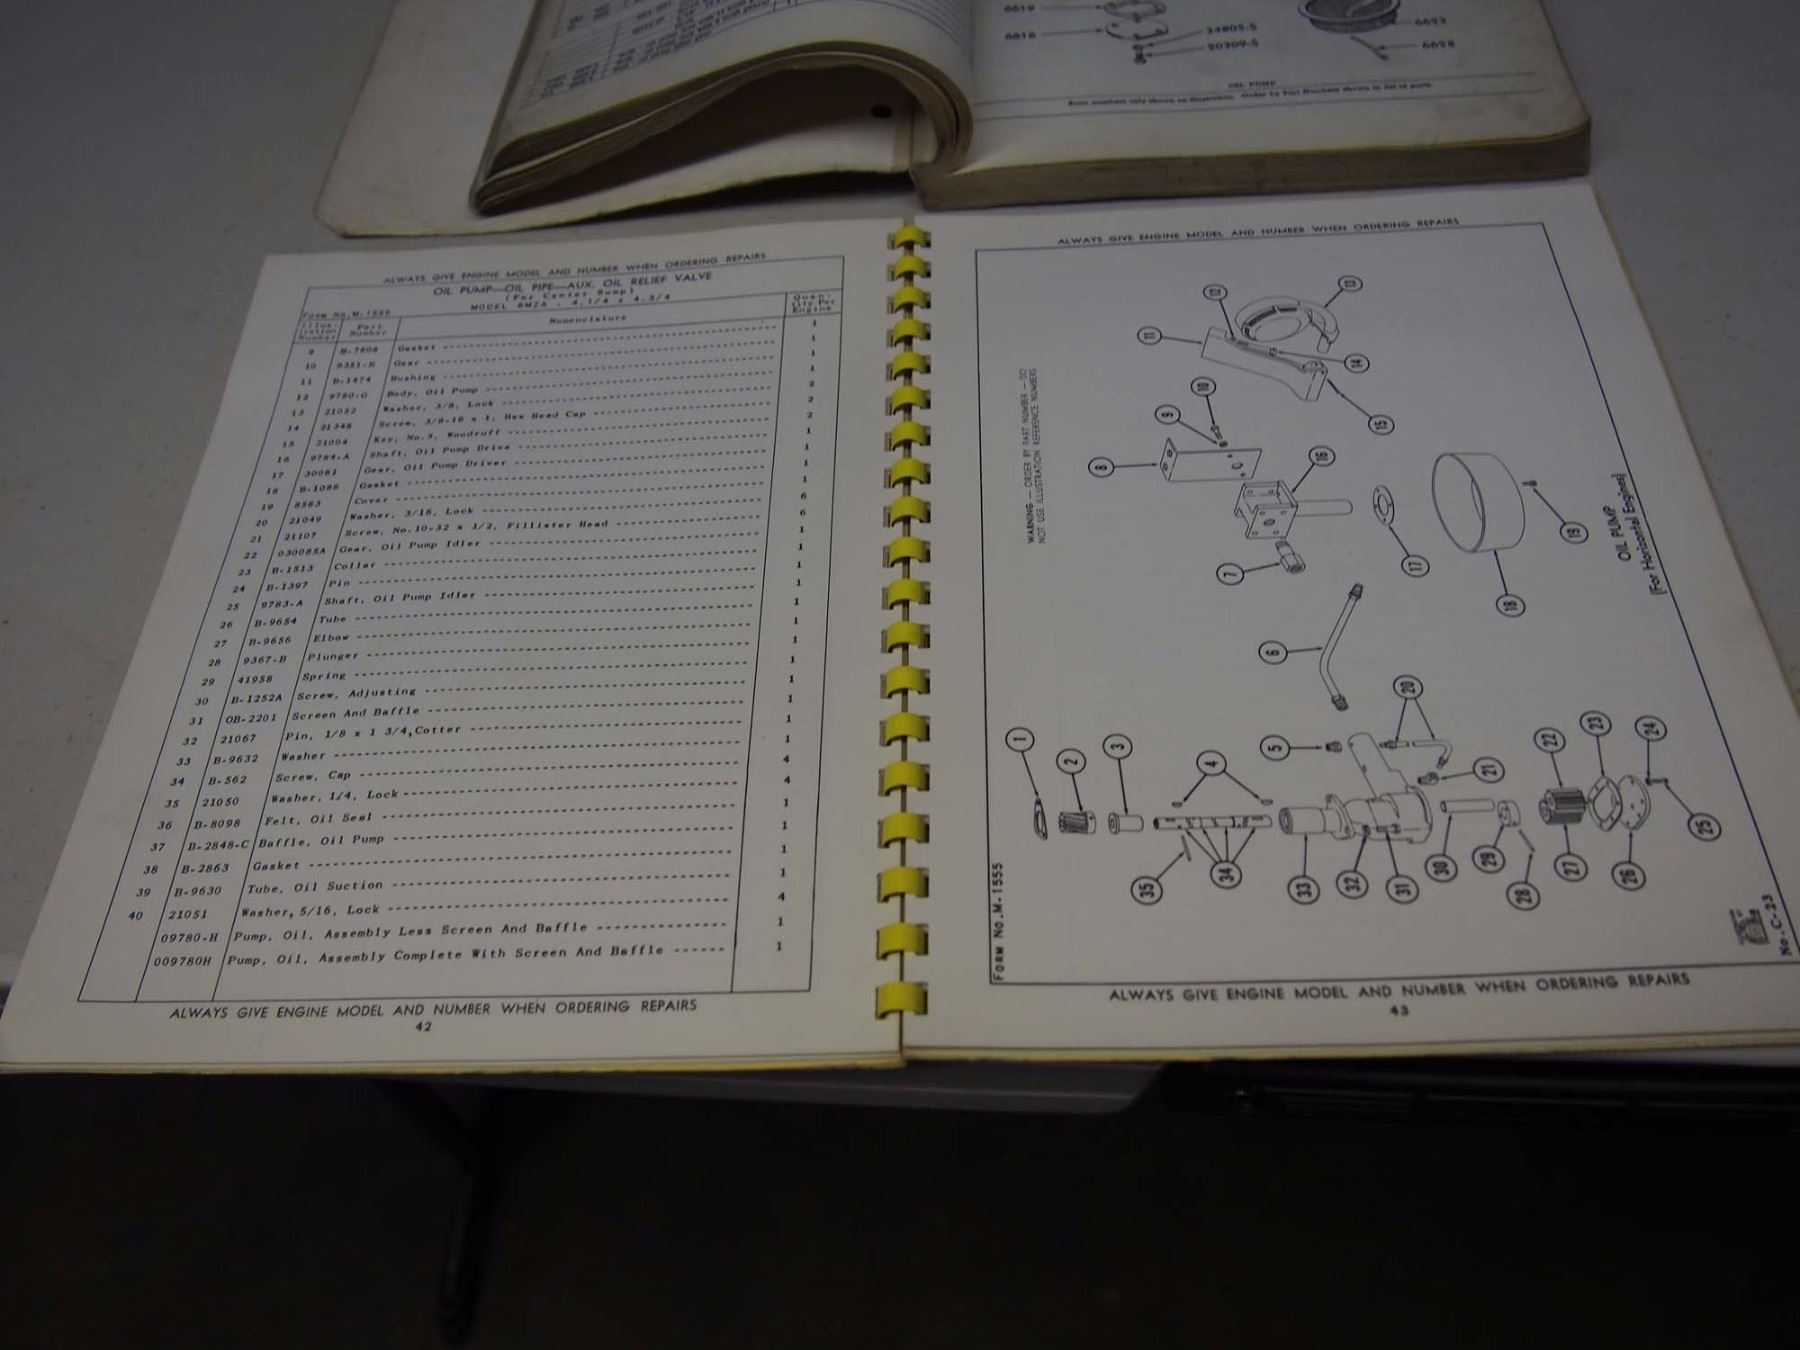 6619
6616
34805-S
20309-S
6623
6628
OIL PUMP
ALWAYS GIVE ENGINE MODEL AND NUMBER WHEN ORDERING REPAIRS
OIL PUMP—OIL PIPE—AUX. OIL RELIEF VALVE
(For Center Sump)
MODEL 6MZA - 4.1/4 x 4.3/4
Form No.M-1555
Illus-tration Number Part Number Nomenclature Quan-tity Per Engine
9 B-7608 Gasket 1
10 9351-N Gear 1
11 B-1474 Bushing 1
12 9780-G Body, Oil Pump 1
13 21052 Washer, 3/8, Lock 2
14 21348 Screw, 3/8-16 x 1, Hex Head Cap 2
15 21004 Key, No.5, Woodruff 2
16 9784-A Shaft, Oil Pump Drive 1
17 30081 Gear, Oil Pump Driver 1
18 B-1086 Gasket 1
19 8583 Cover 1
20 21049 Washer, 3/16, Lock 6
21 21107 Screw, No.10-32 x 1/2, Fillister Head 6
22 030085A Gear, Oil Pump Idler 1
23 B-1513 Collar 1
24 B-1397 Pin 1
25 9783-A Shaft, Oil Pump Idler 1
26 B-9654 Tube 1
27 B-9656 Elbow 1
28 9367-B Plunger 1
29 41958 Spring 1
30 B-1252A Screw, Adjusting 1
31 OB-2201 Screen And Baffle 1
32 21067 Pin, 1/8 x 1 3/4,Cotter 1
33 B-9632 Washer 1
34 B-562 Screw, Cap 4
35 21050 Washer, 1/4, Lock 4
36 B-8098 Felt, Oil Seal 1
37 B-2848-C Baffle, Oil Pump 1
38 B-2863 Gasket 1
39 B-9630 Tube, Oil Suction 1
40 21051 Washer, 5/16, Lock 4
09780-H Pump, Oil, Assembly Less Screen And Baffle 1
009780H Pump, Oil, Assembly Complete With Screen And Baffle 1
ALWAYS GIVE ENGINE MODEL AND NUMBER WHEN ORDERING REPAIRS
42
ALWAYS GIVE ENGINE MODEL AND NUMBER WHEN ORDERING REPAIRS
WARNING — ORDER BY PART NUMBER — DO
NOT USE ILLUSTRATION REFERENCE NUMBERS
1
2
3
4
5
6
7
8
9
10
11
12
13
14
15
16
17
18
19
20
21
22
23
24
25
26
27
28
29
30
31
32
33
34
35
OIL PUMP
(For Horizontal Engines)
FORM No.M-1555
No.C-23
ALWAYS GIVE ENGINE MODEL AND NUMBER WHEN ORDERING REPAIRS
43